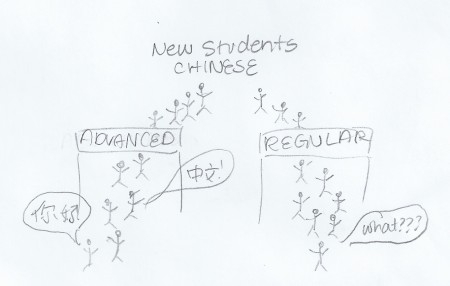 New Students
CHINESE
ADVANCED
REGULAR
中文!
你好!
what???